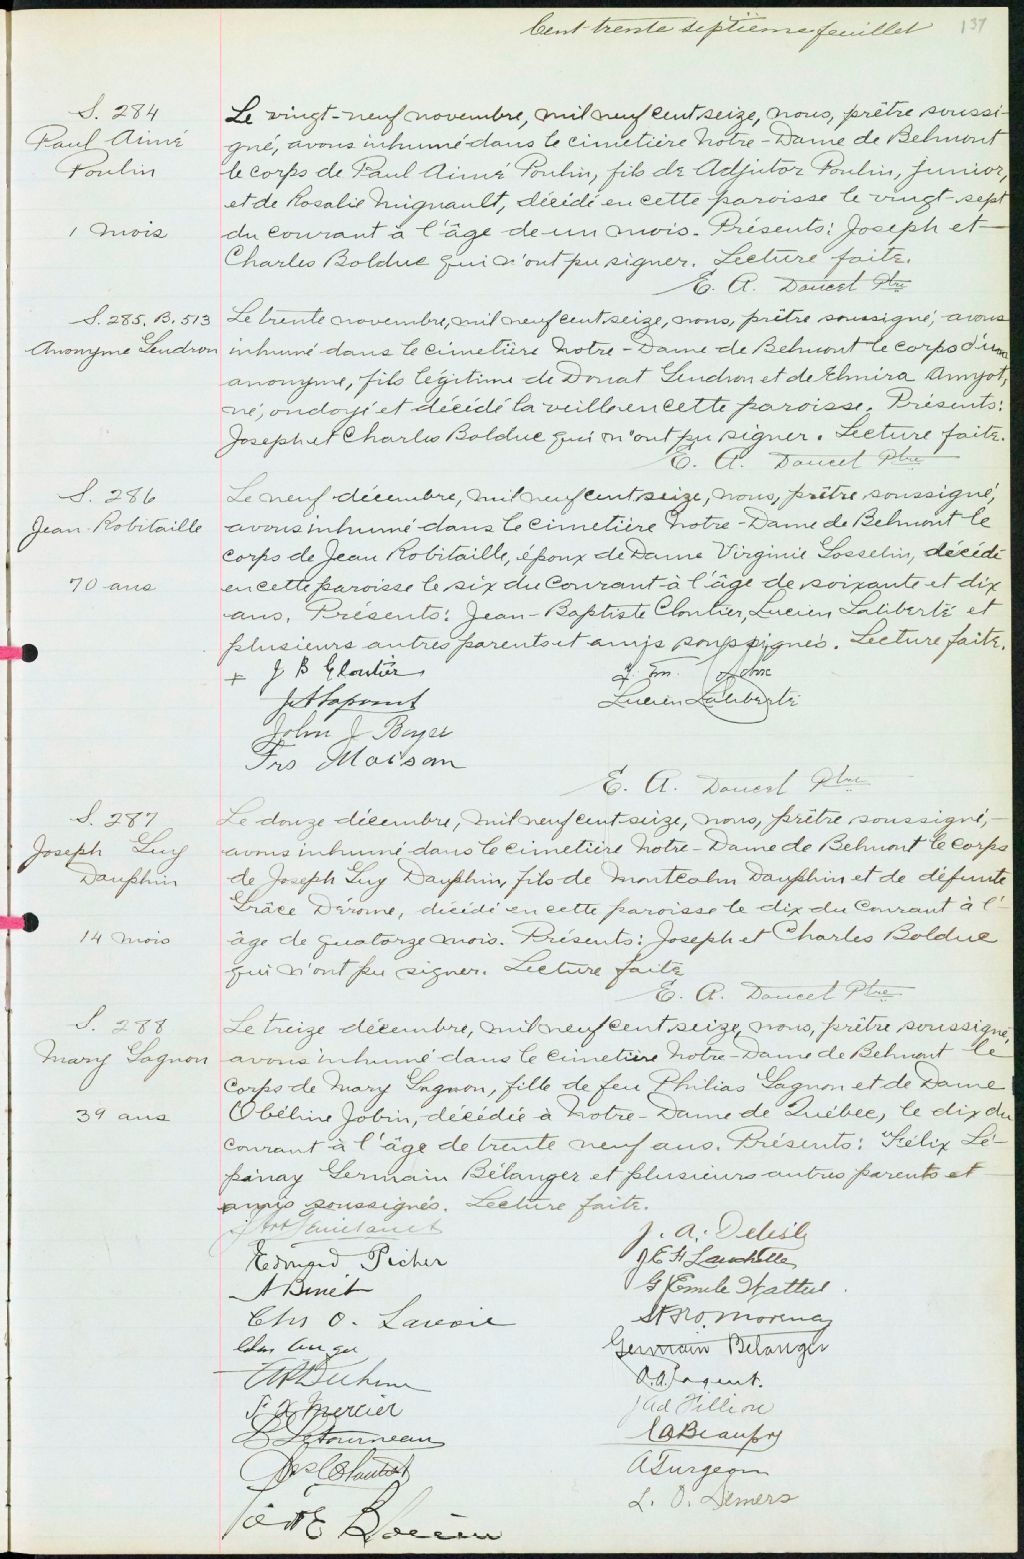 Cent trente septième feuillet
137
S. 284
Paul Aimé
Poulin
1 mois
Le vingt-neuf novembre, mil neuf cent seize, nous, prêtre soussi-
gné, avons inhumé dans le cimetière Notre-Dame de Belmont
le corps de Paul Aimé Poulin, fils de Adjutor Poulin, junior,
et de Rosalie Mignault, décédé en cette paroisse le vingt-sept
du courant à l'âge de un mois. Présents: Joseph et
Charles Bolduc qui n'ont pu signer. Lecture faite.
E. A. Doucet Ptre
S. 285. B. 513
Anonyme Gendron
Le trente novembre, mil neuf cent seize, nous, prêtre soussigné, avons
inhumé dans le cimetière Notre-Dame de Belmont le corps d'un
anonyme, fils légitime de Donat Gendron et de Elmira Amyot,
né, ondoyé et décédé la veille en cette paroisse. Présents:
Joseph et Charles Bolduc qui n'ont pu signer. Lecture faite.
E. A. Doucet Ptre
S. 286
Jean Robitaille
70 ans
Le neuf décembre, mil neuf cent seize, nous, prêtre soussigné,
avons inhumé dans le cimetière Notre-Dame de Belmont le
corps de Jean Robitaille, époux de Dame Virginie Gosselin, décédé
en cette paroisse le six du courant à l'âge de soixante et dix
ans. Présents: Jean-Baptiste Cloutier, Lucien Laliberté et
plusieurs autres parents et amis soussignés. Lecture faite.
+ J B Cloutier
J A Lapointe
Lucien Laliberté
John J Boyce
Frs Moisan
E. A. Doucet Ptre
S. 287
Joseph Guy
Dauphin
14 mois
Le douze décembre, mil neuf cent seize, nous, prêtre soussigné,
avons inhumé dans le cimetière Notre-Dame de Belmont le corps
de Joseph Guy Dauphin, fils de Montcalm Dauphin et de défunte
Grâce Dérome, décédé en cette paroisse le dix du courant à l'-
âge de quatorze mois. Présents: Joseph et Charles Bolduc
qui n'ont pu signer. Lecture faite
E. A. Doucet Ptre
S. 288
Mary Gagnon
39 ans
Le treize décembre, mil neuf cent seize, nous, prêtre soussigné,
avons inhumé dans le cimetière Notre-Dame de Belmont le
corps de Mary Gagnon, fille de feu Philias Gagnon et de Dame
Obéline Jobin, décédée à Notre-Dame de Québec, le dix du
courant à l'âge de trente neuf ans. Présents: Félix Lé-
pinay Germain Bélanger et plusieurs autres parents et
amis soussignés. Lecture faite.
J. A. Delisle
Edouard Picher
A Binet
G Emile
Chs O. Lavoie
Germain Belanger
F X Mercier
Ad Fillion
L Letourneau
A Turgeon
L. O. Demers